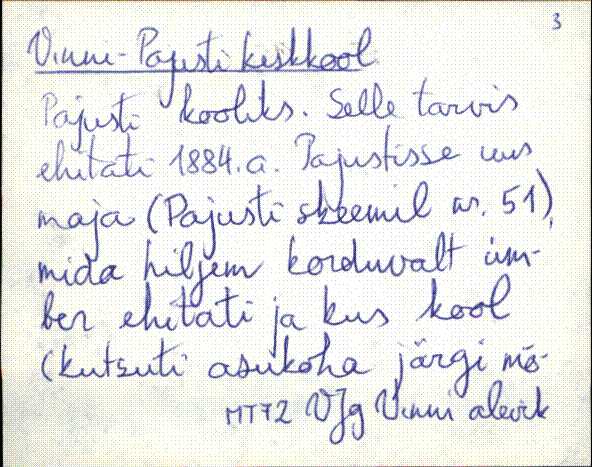 3
Vinni-Pajusti keskkool
Pajusti kooliks. Selle tarvis
ehitati 1884.a. Pajustisse uus
maja (Pajusti skeemil nr. 51),
mida hiljem korduvalt üm-
ber ehitati ja kus kool
(kutsuti asukoha järgi mõ-
MT72 VJg Vinni alevik